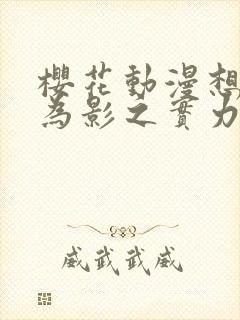 櫻花動漫想
為影之實力
威武武威